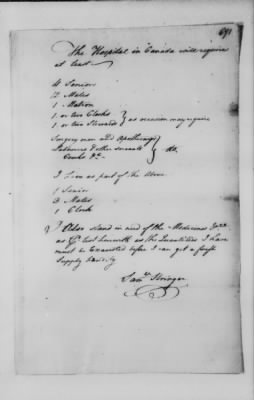 691
The Hospital in Canada will require
at least
4 Seniors
12 Mates
1 Matron
1 or two Clerks
1 or two Stewards } as occasion may require
Surgery man and Apothecary
Labourers & other servants } do.
Cooks &c.
I have as part of the above
1 Senior
3 Mates
1 Clerk
I Also stand in need of the Medicines
as the Quantities I have
must be Exhausted before I can get a fresh
Supply
Saml. Stringer